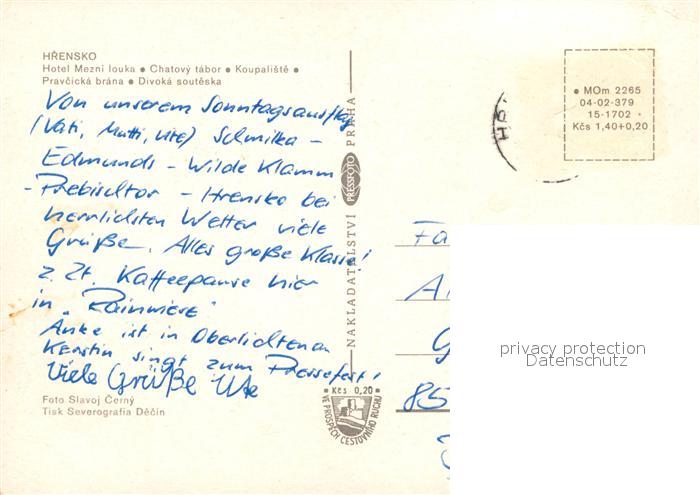 HŘENSKO
Hotel Mezní louka ● Chatový tábor ● Koupaliště ●
Pravčická brána ● Divoká soutěska
Von unserem Sonntagsausflug
(Vati, Mutti, Ute) Schmilka -
Edmunds - Wilde Klamm
- Prebischtor - Hrensko bei
herrlichsten Wetter viele
Grüße. Alles große Klasse!
z. Zt. Kaffeepause hier
in "Rainwiese"
Anke ist in Oberlichtenau
Kerstin singt zum Pressefest!
Viele Grüße Ute
Foto Slavoj Černý
Tisk Severografia Děčín
NAKLADATELSTVÍ PRESSFOTO PRAHA
● Kčs 0,20 ●
VE PROSPĚCH CESTOVNÍHO RUCHU
● MOm 2265
04-02-379
15-1702
Kčs 1,40+0,20
Fa
A
G
85
privacy protection
Datenschutz